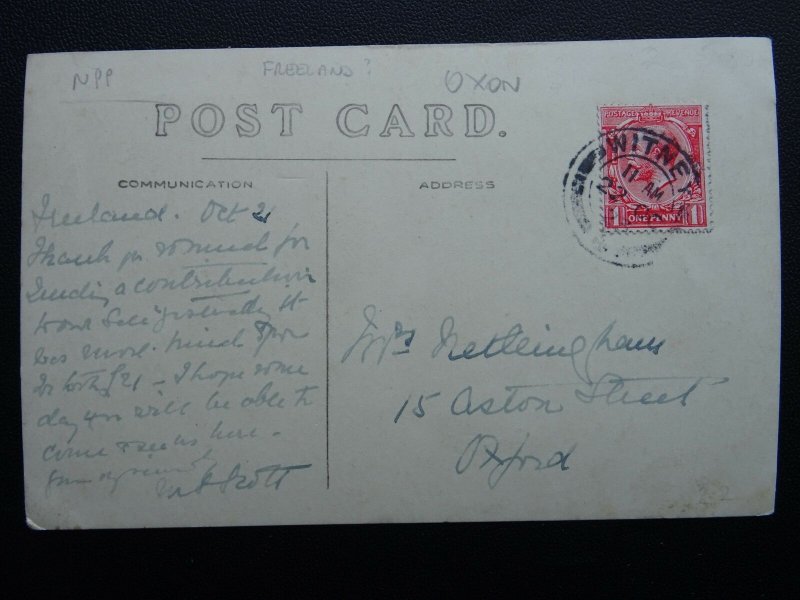 NPP
FREELAND?
OXON
POST CARD.
COMMUNICATION
ADDRESS
POSTAGE REVENUE
ONE PENNY
1 1
WITNEY
11 AM
22
Freeland. Oct 21
Thank you so much for
sending a contribution
to our Sale yesterday it
was most kind of you
I hope some
day you will be able to
come & see us here -
Scott
Mrs Nettleingham
15 Aston Street
Oxford